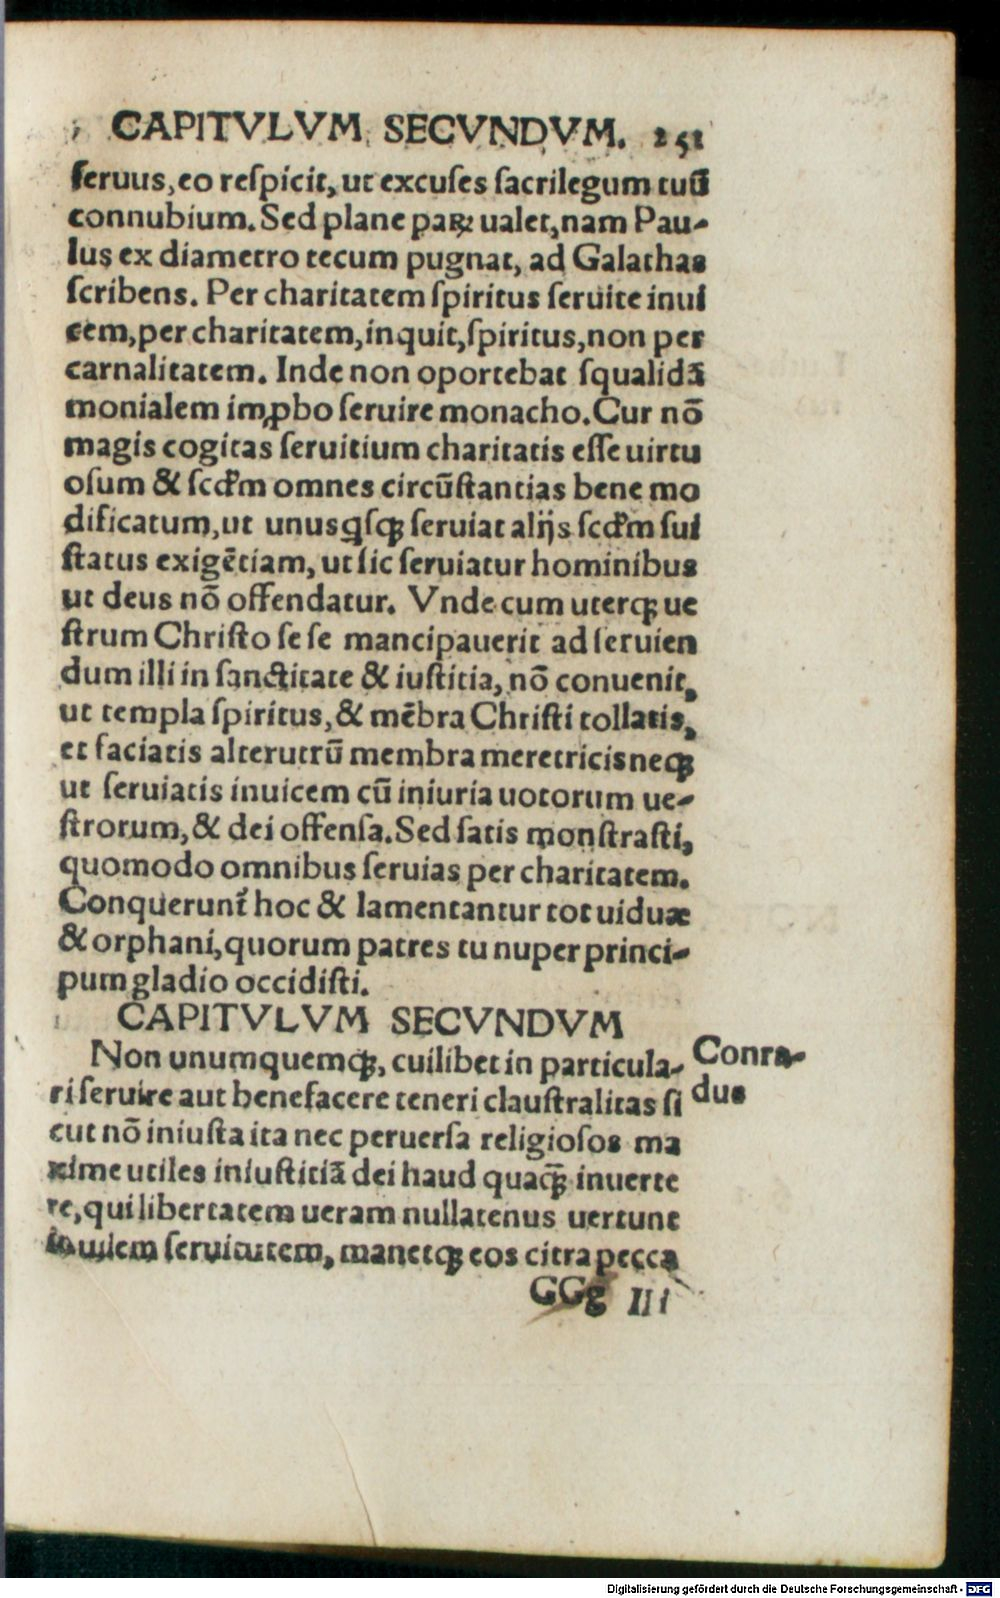 CAPITVLVM SECVNDVM. 251
ſeruus, eo reſpicit, ut excuſes ſacrilegum tuū
connubium. Sed plane paꝝ ualet, nam Pau-
lus ex diametro tecum pugnat, ad Galathas
ſcribens. Per charitatem ſpiritus ſeruite inui
cem, per charitatem, inquit, ſpiritus, non per
carnalitatem. Inde non oportebat ſqualidã
monialem imꝓbo ſeruire monacho. Cur nõ
magis cogitas ſeruitium charitatis eſſe uirtu
oſum & ſcd'm omnes circūſtantias bene mo
dificatum, ut unusqſqꝫ ſeruiat alijs ſcd'm ſui
ſtatus exigẽtiam, ut ſic ſeruiatur hominibus
ut deus nõ offendatur. Vnde cum uterqꝫ ue
ſtrum Chriſto ſe ſe mancipauerit ad ſeruien
dum illi in ſanctitate & iuſtitia, nõ conuenit,
ut templa ſpiritus, & mẽbra Chriſti tollatis,
et faciatis alterutrū membra meretricis neqꝫ
ut ſeruiatis inuicem cū iniuria uotorum ue-
ſtrorum, & dei offenſa. Sed ſatis monſtraſti,
quomodo omnibus ſeruias per charitatem.
Conquerunt̃ hoc & lamentantur tot uiduæ
& orphani, quorum patres tu nuper princi-
pum gladio occidiſti.
CAPITVLVM SECVNDVM
Non unumquemqꝫ, cuilibet in particula-
ri ſeruire aut benefacere teneri clauſtralitas ſi
cut nõ iniuſta ita nec peruerſa religioſos ma
xime utiles iniuſtitiã dei haud quaqꝫ̃ inuerte
re, qui libertatem ueram nullatenus uertunt
in uilem ſeruitutem, manetqꝫ eos citra pecca
Conra-
dus
GGg III
Digitalisierung gefördert durch die Deutsche Forschungsgemeinschaft - DFG